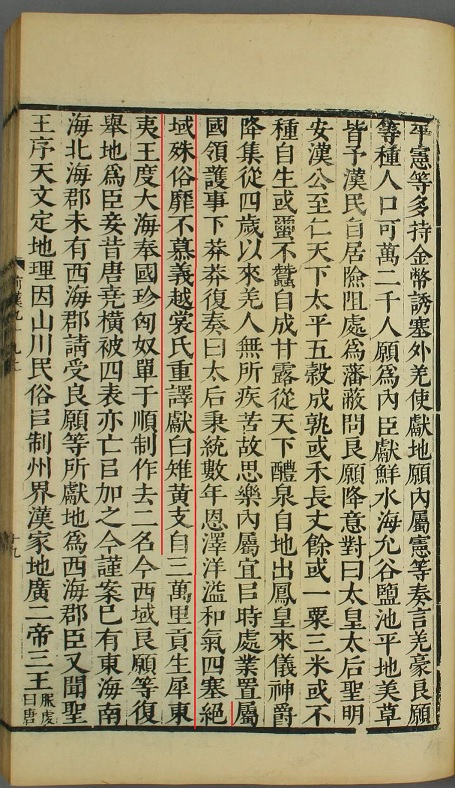 平憲等多持金幣誘塞外羌使獻地願內屬憲等奏言羌豪良願
等種人口可萬二千人願爲內臣獻鮮水海允谷鹽池平地美草
皆予漢民自居險阻處爲藩蔽問良願降意對曰太皇太后聖明
安漢公至仁天下太平五穀成孰或禾長丈餘或一粟三米或不
種自生或蠒不蠶自成甘露從天下醴泉自地出鳳皇來儀神爵
降集從四歲以來羌人無所疾苦故思樂內屬宜㠯時處業置屬
國領護事下莽莽復奏曰太后秉統數年恩澤洋溢和氣四塞絕
域殊俗靡不慕義越裳氏重譯獻白雉黃支自三萬里貢生犀東
夷王度大海奉國珍匈奴單于順制作去二名今西域良願等復
舉地爲臣妾昔唐堯橫被四表亦亡㠯加之今謹案已有東海南
海北海郡未有西海郡請受良願等所獻地爲西海郡臣又聞聖
王序天文定地理因山川民俗㠯制州界漢家地廣二帝三王服虔曰唐